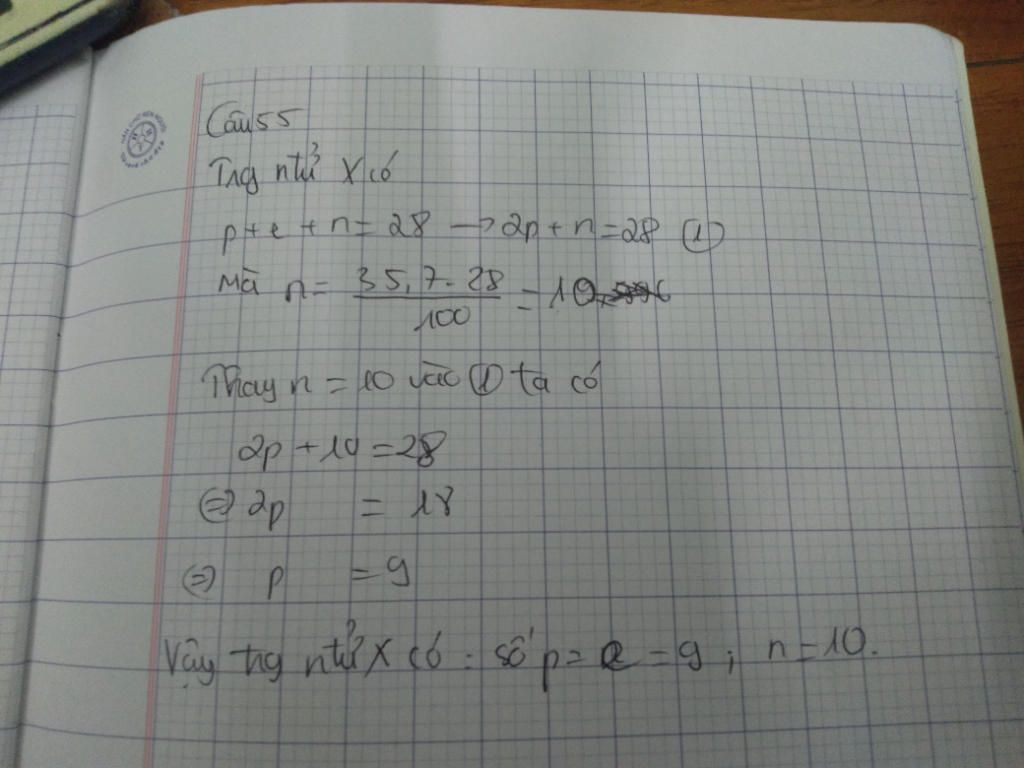 Câu 55
Trg ntử X có
p+e+n=28 → 2p+n=28 (1)
Mà n= 35,7.28/100 = 10
Thay n=10 vào (1) ta có
2p+10=28
⇔ 2p = 18
⇔ p = 9
Vậy trg ntử X có : số p=e=9; n=10.